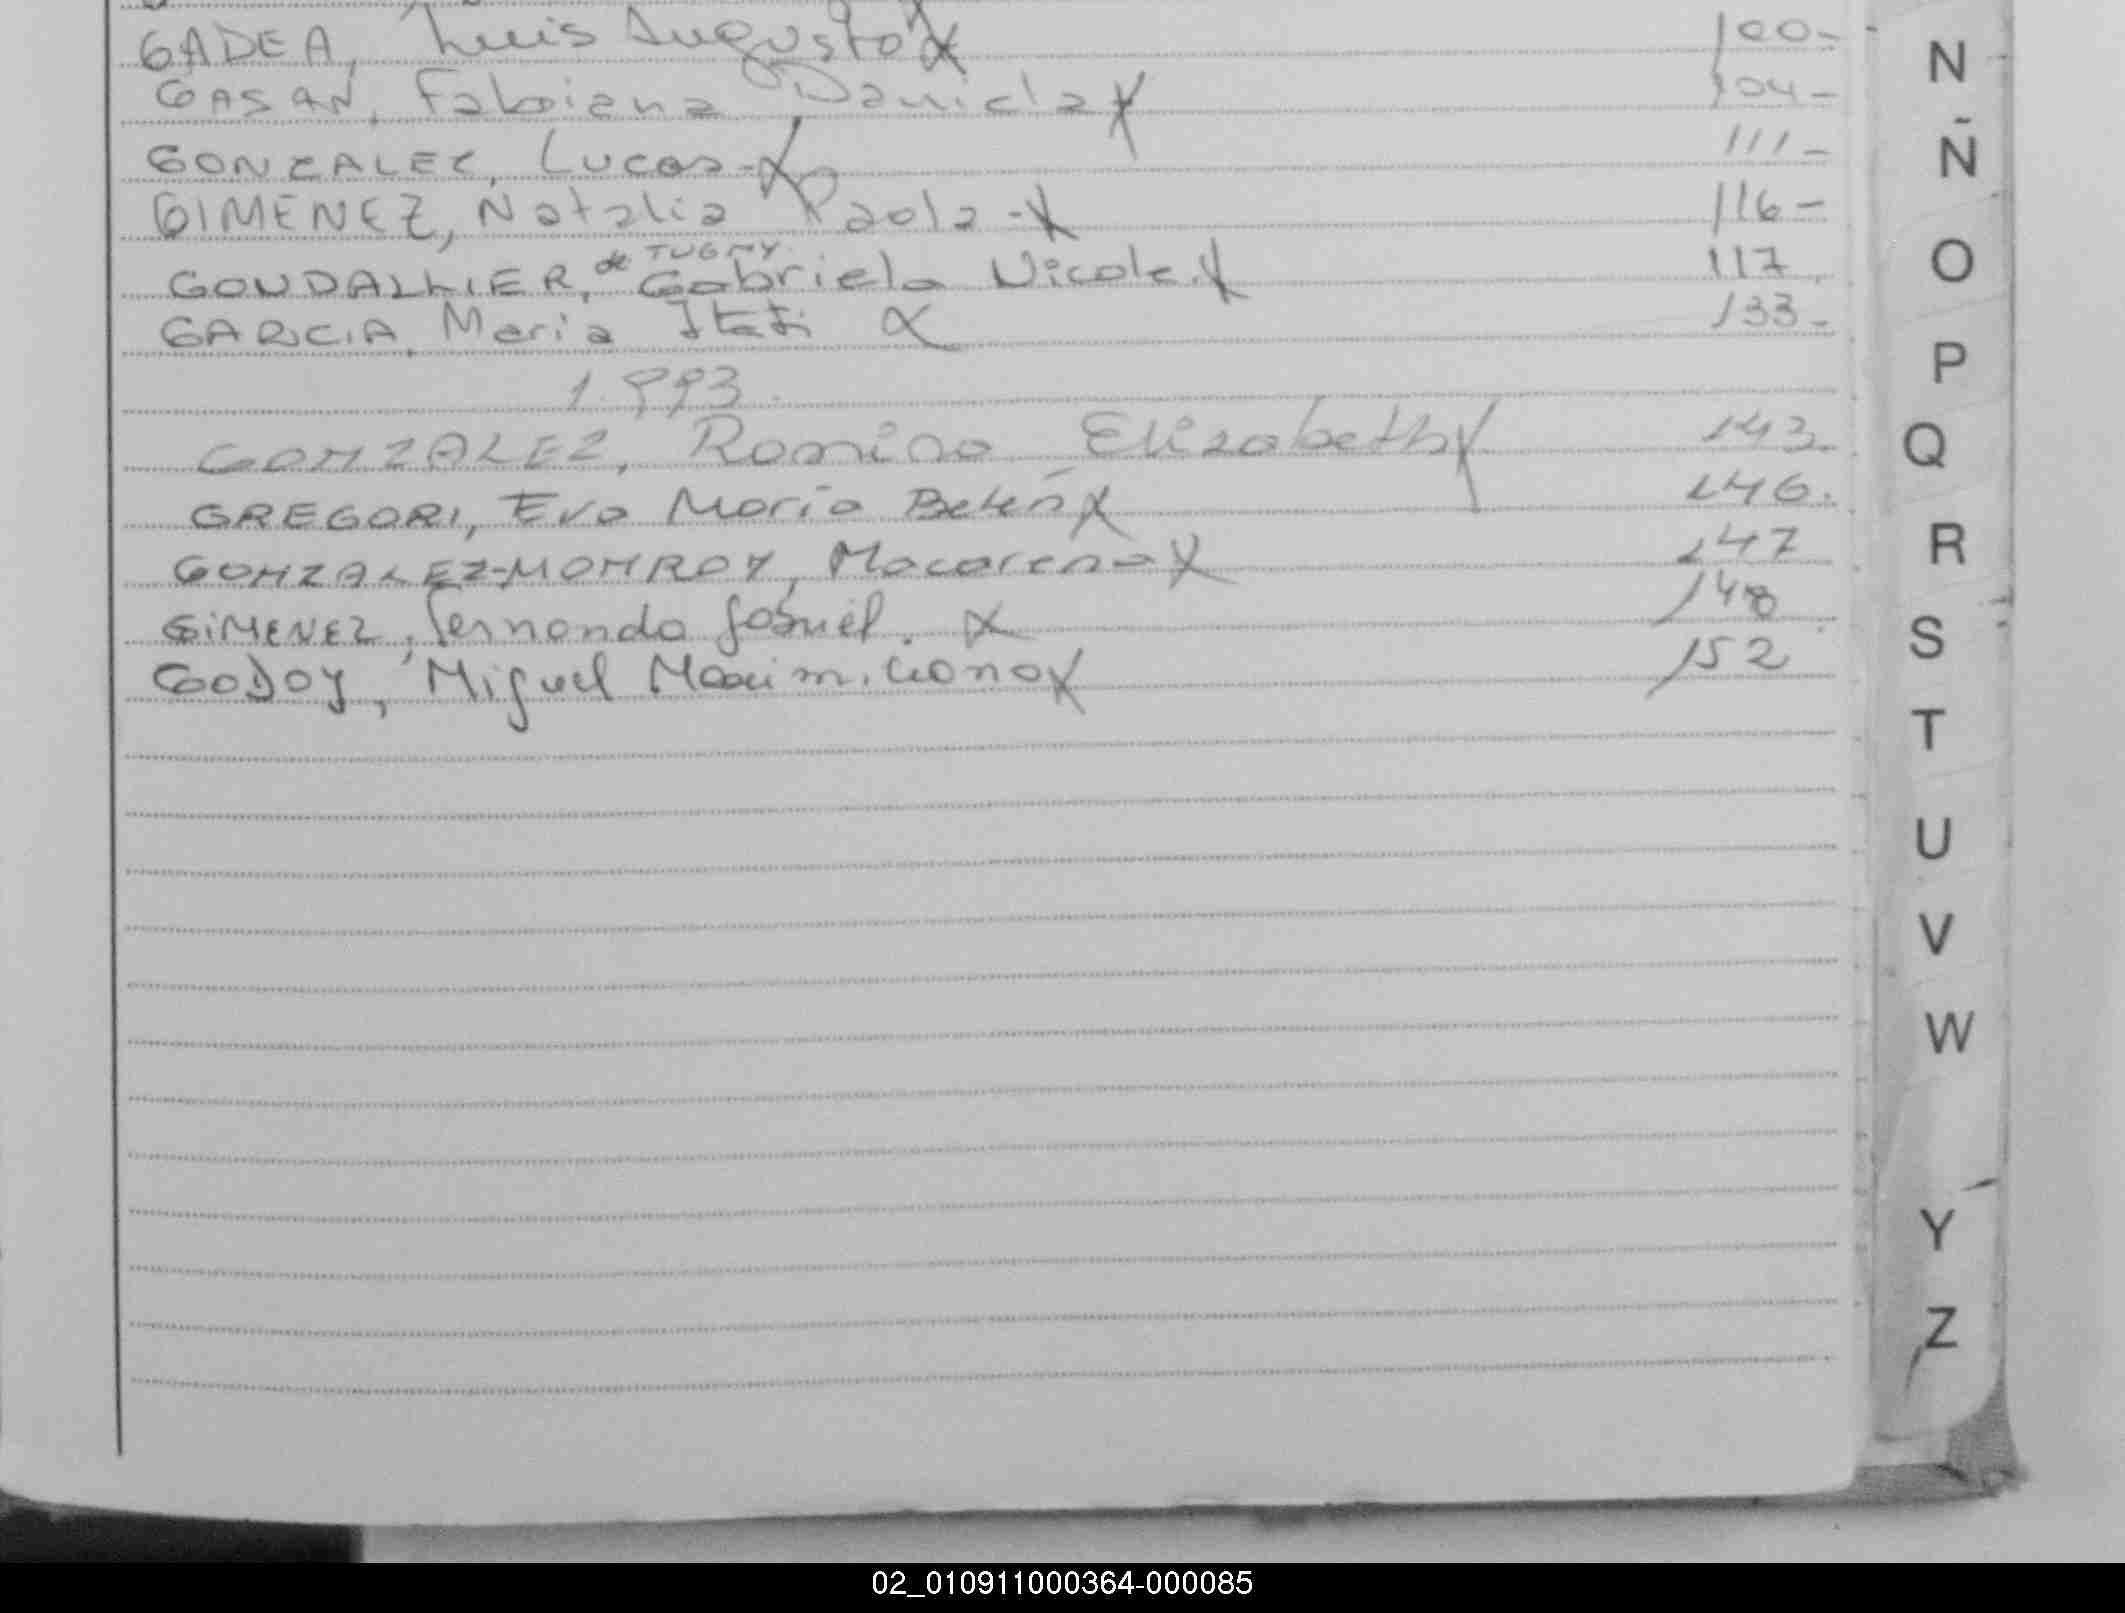 GADEA, Luis Augusto X 100-
GASAN, Fabiana Daniela X 104-
GONZALEZ, Lucas - X 111-
GIMENEZ, Natalia Paola - X 116-
de TUGNY
GOUDALLIER, Gabriela Nicole. X 117
GARCIA, Maria Itati X 133-
1.993.
GONZALEZ, Romina Elizabeth X 143
GREGORI, Eva María Belén X 146.
GONZALEZ-MONROY, Macarena X 147
GIMENEZ, Fernando X 148
GODOY, Miguel Maximiliano X 152
N
Ñ
O
P
Q
R
S
T
U
V
W
Y
Z
02_010911000364-000085